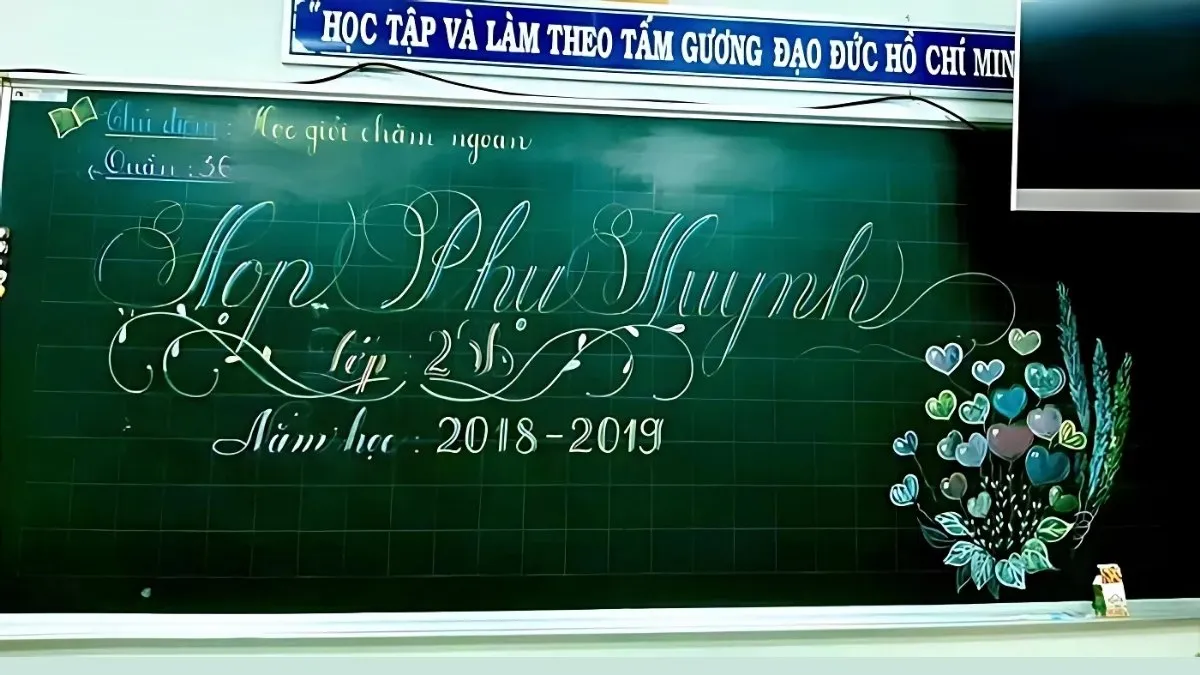 "HỌC TẬP VÀ LÀM THEO TẤM GƯƠNG ĐẠO ĐỨC HỒ CHÍ MIN
Chủ điểm : Học giỏi chăm ngoan
Họp Phụ Huynh
Lớp : 2
Năm học : 2018-2019